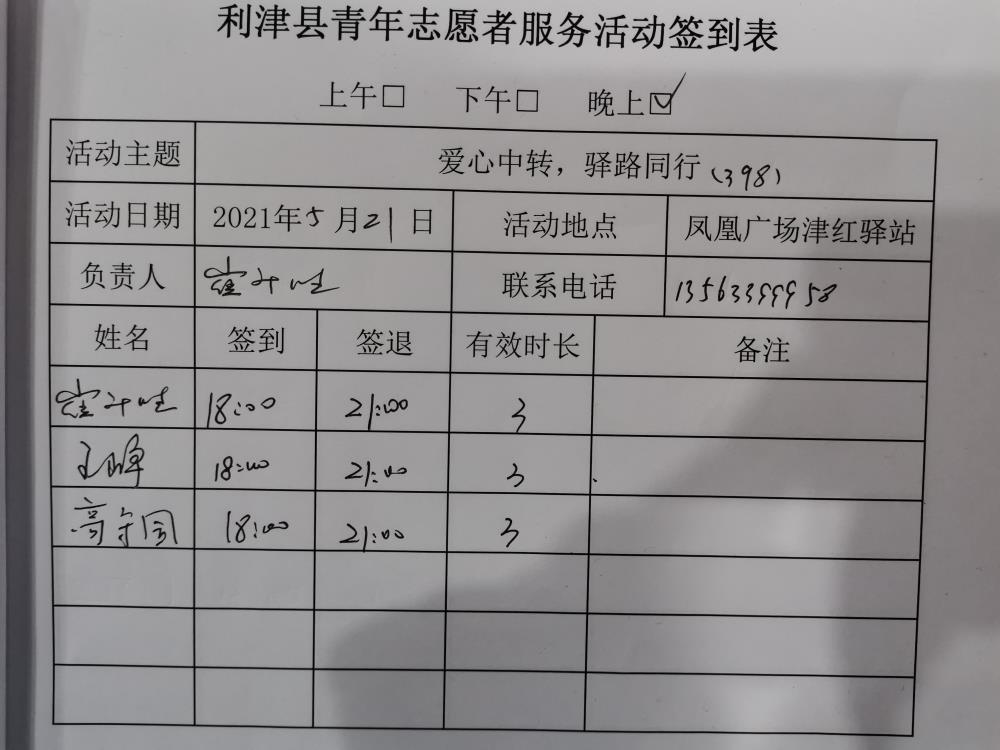 利津县青年志愿者服务活动签到表
上午□ 下午□ 晚上☑
活动主题 爱心中转，驿路同行（398）
活动日期 2021年5月21日 活动地点 凤凰广场津红驿站
负责人 联系电话 13563399958
姓名 签到 签退 有效时长 备注
18:00 21:00 3
王晖 18:00 21:00 3
高守国 18:00 21:00 3